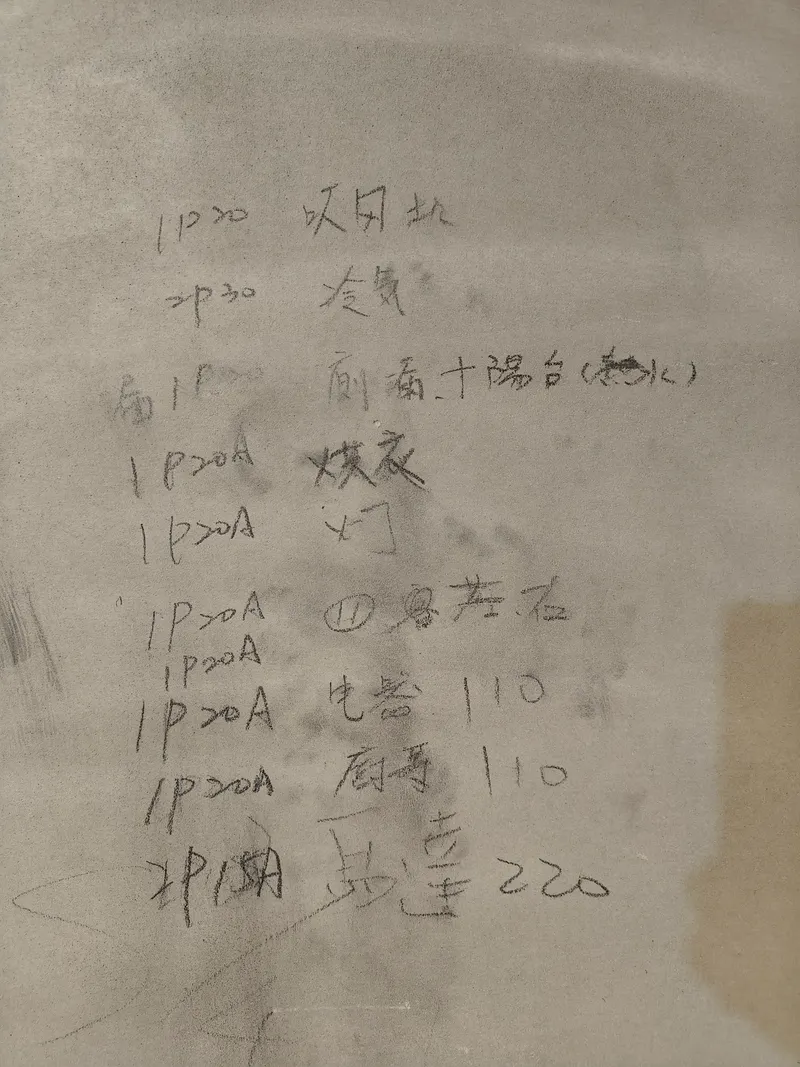 1P20
2P30 冷気
1P 廁 十陽台(水)
1P20A 烘衣
1P20A 灯
1P20A ⑪ 客 右
1P20A
1P20A 电器 110
1P20A 廚 110
2P15A 馬達 220